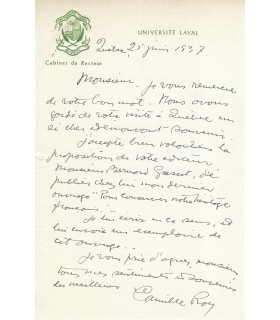 UNIVERSITÉ LAVAL
Cabinet du Recteur
Québec 25 juin 1937
Monsieur, je vous remercie
de votre bon mot. Nous avons
gardé de votre visite à Québec un
si cher souvenir.
J'accepte bien volontiers la
proposition de votre éditeur
Monsieur Bernard Grasset, de
publier chez lui mon dernier
ouvrage "Pour conserver notre héritage
français".
Je lui écris en ce sens, et
lui envoie un exemplaire de
cet ouvrage.
Je vous prie d'agréer, monsieur,
tous mes sentiments et souvenirs
les meilleurs
Camille Roy